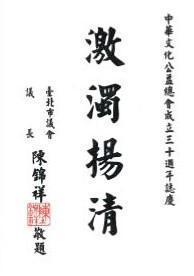 中華文化公益總會成立三十週年誌慶
激濁揚清
臺北市議會
議長
陳錦祥
敬題